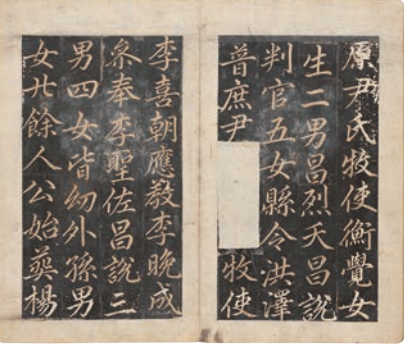 原尹氏牧使衡覺女
生二男昌烈夭昌說
判官五女縣令洪澤
普庶尹
牧使
李喜朝應敎李晩成
叅奉李聖佐昌說三
男四女皆幼外孫男
女廿餘人公始葬楊